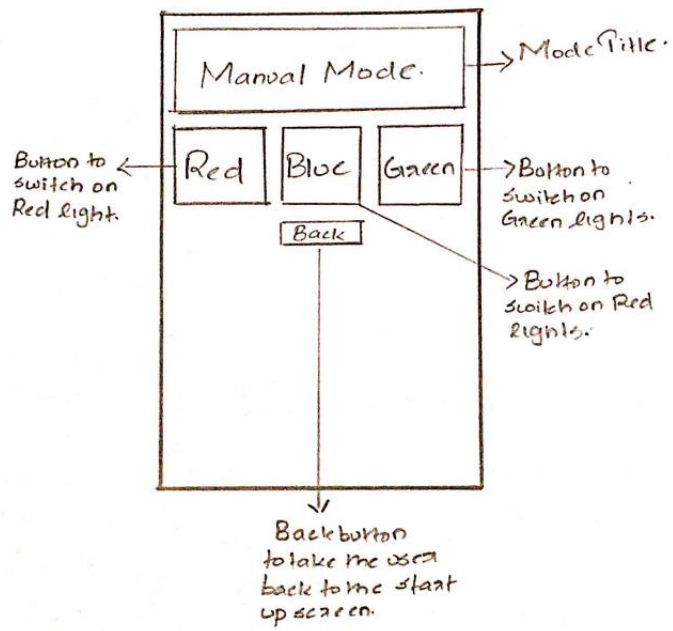 Manual Mode.
Mode Title.
Button to
switch on
Red light.
Red
Blue
Green
Button to
switch on
Green lights.
Back
Button to
switch on Red
lights.
Back button
to take the user
back to the start
up screen.